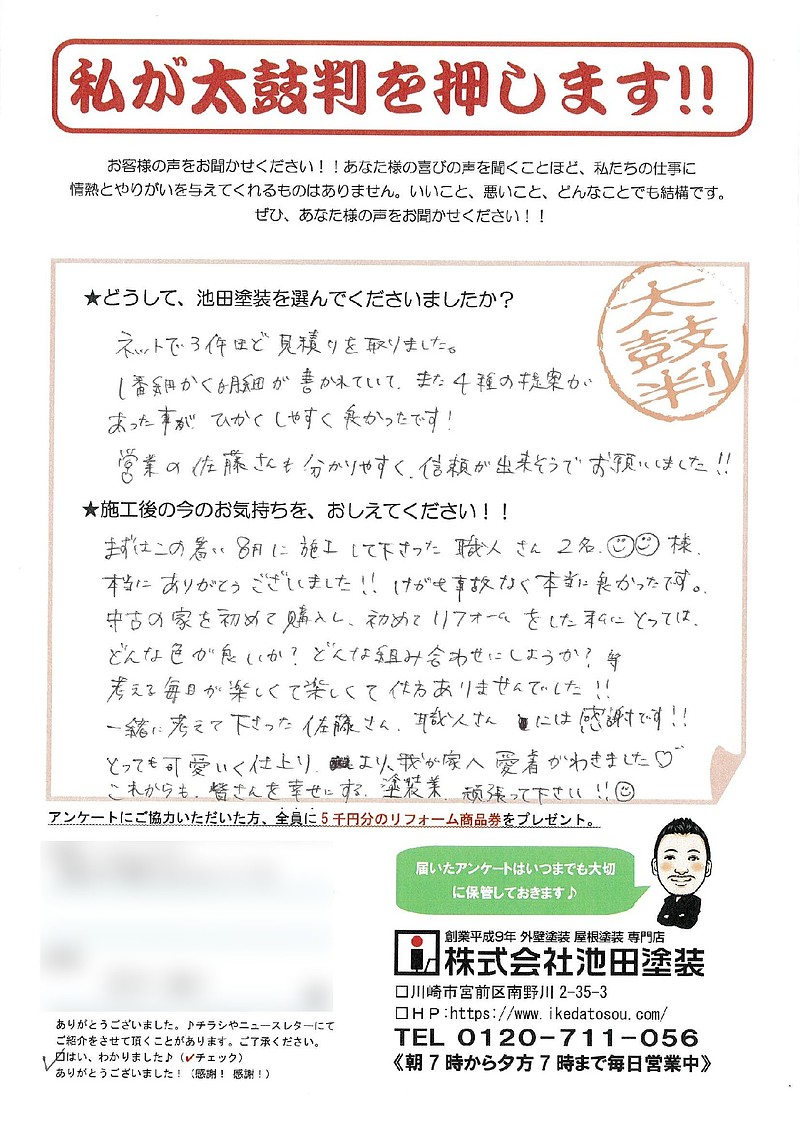 私が太鼓判を押します!!
お客様の声をお聞かせください！！あなた様の喜びの声を聞くことほど、私たちの仕事に
情熱とやりがいを与えてくれるものはありません。いいこと、悪いこと、どんなことでも結構です。
ぜひ、あなた様の声をお聞かせください！！
太鼓判
★どうして、池田塗装を選んでくださいましたか？
ネットで3件ほど見積りを取りました。
1番細かく明細が書かれていて、また4種の提案が
あった事がひかくしやすく良かったです！
営業の佐藤さんも分かりやすく、信頼が出来そうでお願いしました!!
★施工後の今のお気持ちを、おしえてください！！
まずはこの暑い8月に施工して下さった職人さん2名、様、
本当にありがとうございました!! けがも事故なく本当に良かったです。
中古の家を初めて購入し、初めてリフォームをした私にとっては、
どんな色が良いか？どんな組み合わせにしようか？等
考える毎日が楽しくて楽しくて仕方ありませんでした!!
一緒に考えて下さった佐藤さん、職人さんには感謝です!!
とっても可愛いく仕上り、より、我が家へ愛着がわきました♡
これからも、皆さんを幸せにする、塗装業、頑張って下さい!!
アンケートにご協力いただいた方、全員に5千円分のリフォーム商品券をプレゼント。
届いたアンケートはいつまでも大切
に保管しておきます♪
創業平成9年 外壁塗装 屋根塗装 専門店
株式会社池田塗装
□川崎市宮前区南野川2-35-3
□HP:https://www.ikedatosou.com/
TEL 0120-711-056
《朝7時から夕方7時まで毎日営業中》
ありがとうございました。♪チラシやニュースレターにて
ご紹介をさせて頂くことがあります。ご了承ください。
□はい、わかりました♪（✓チェック）
ありがとうございました！（感謝！感謝！）